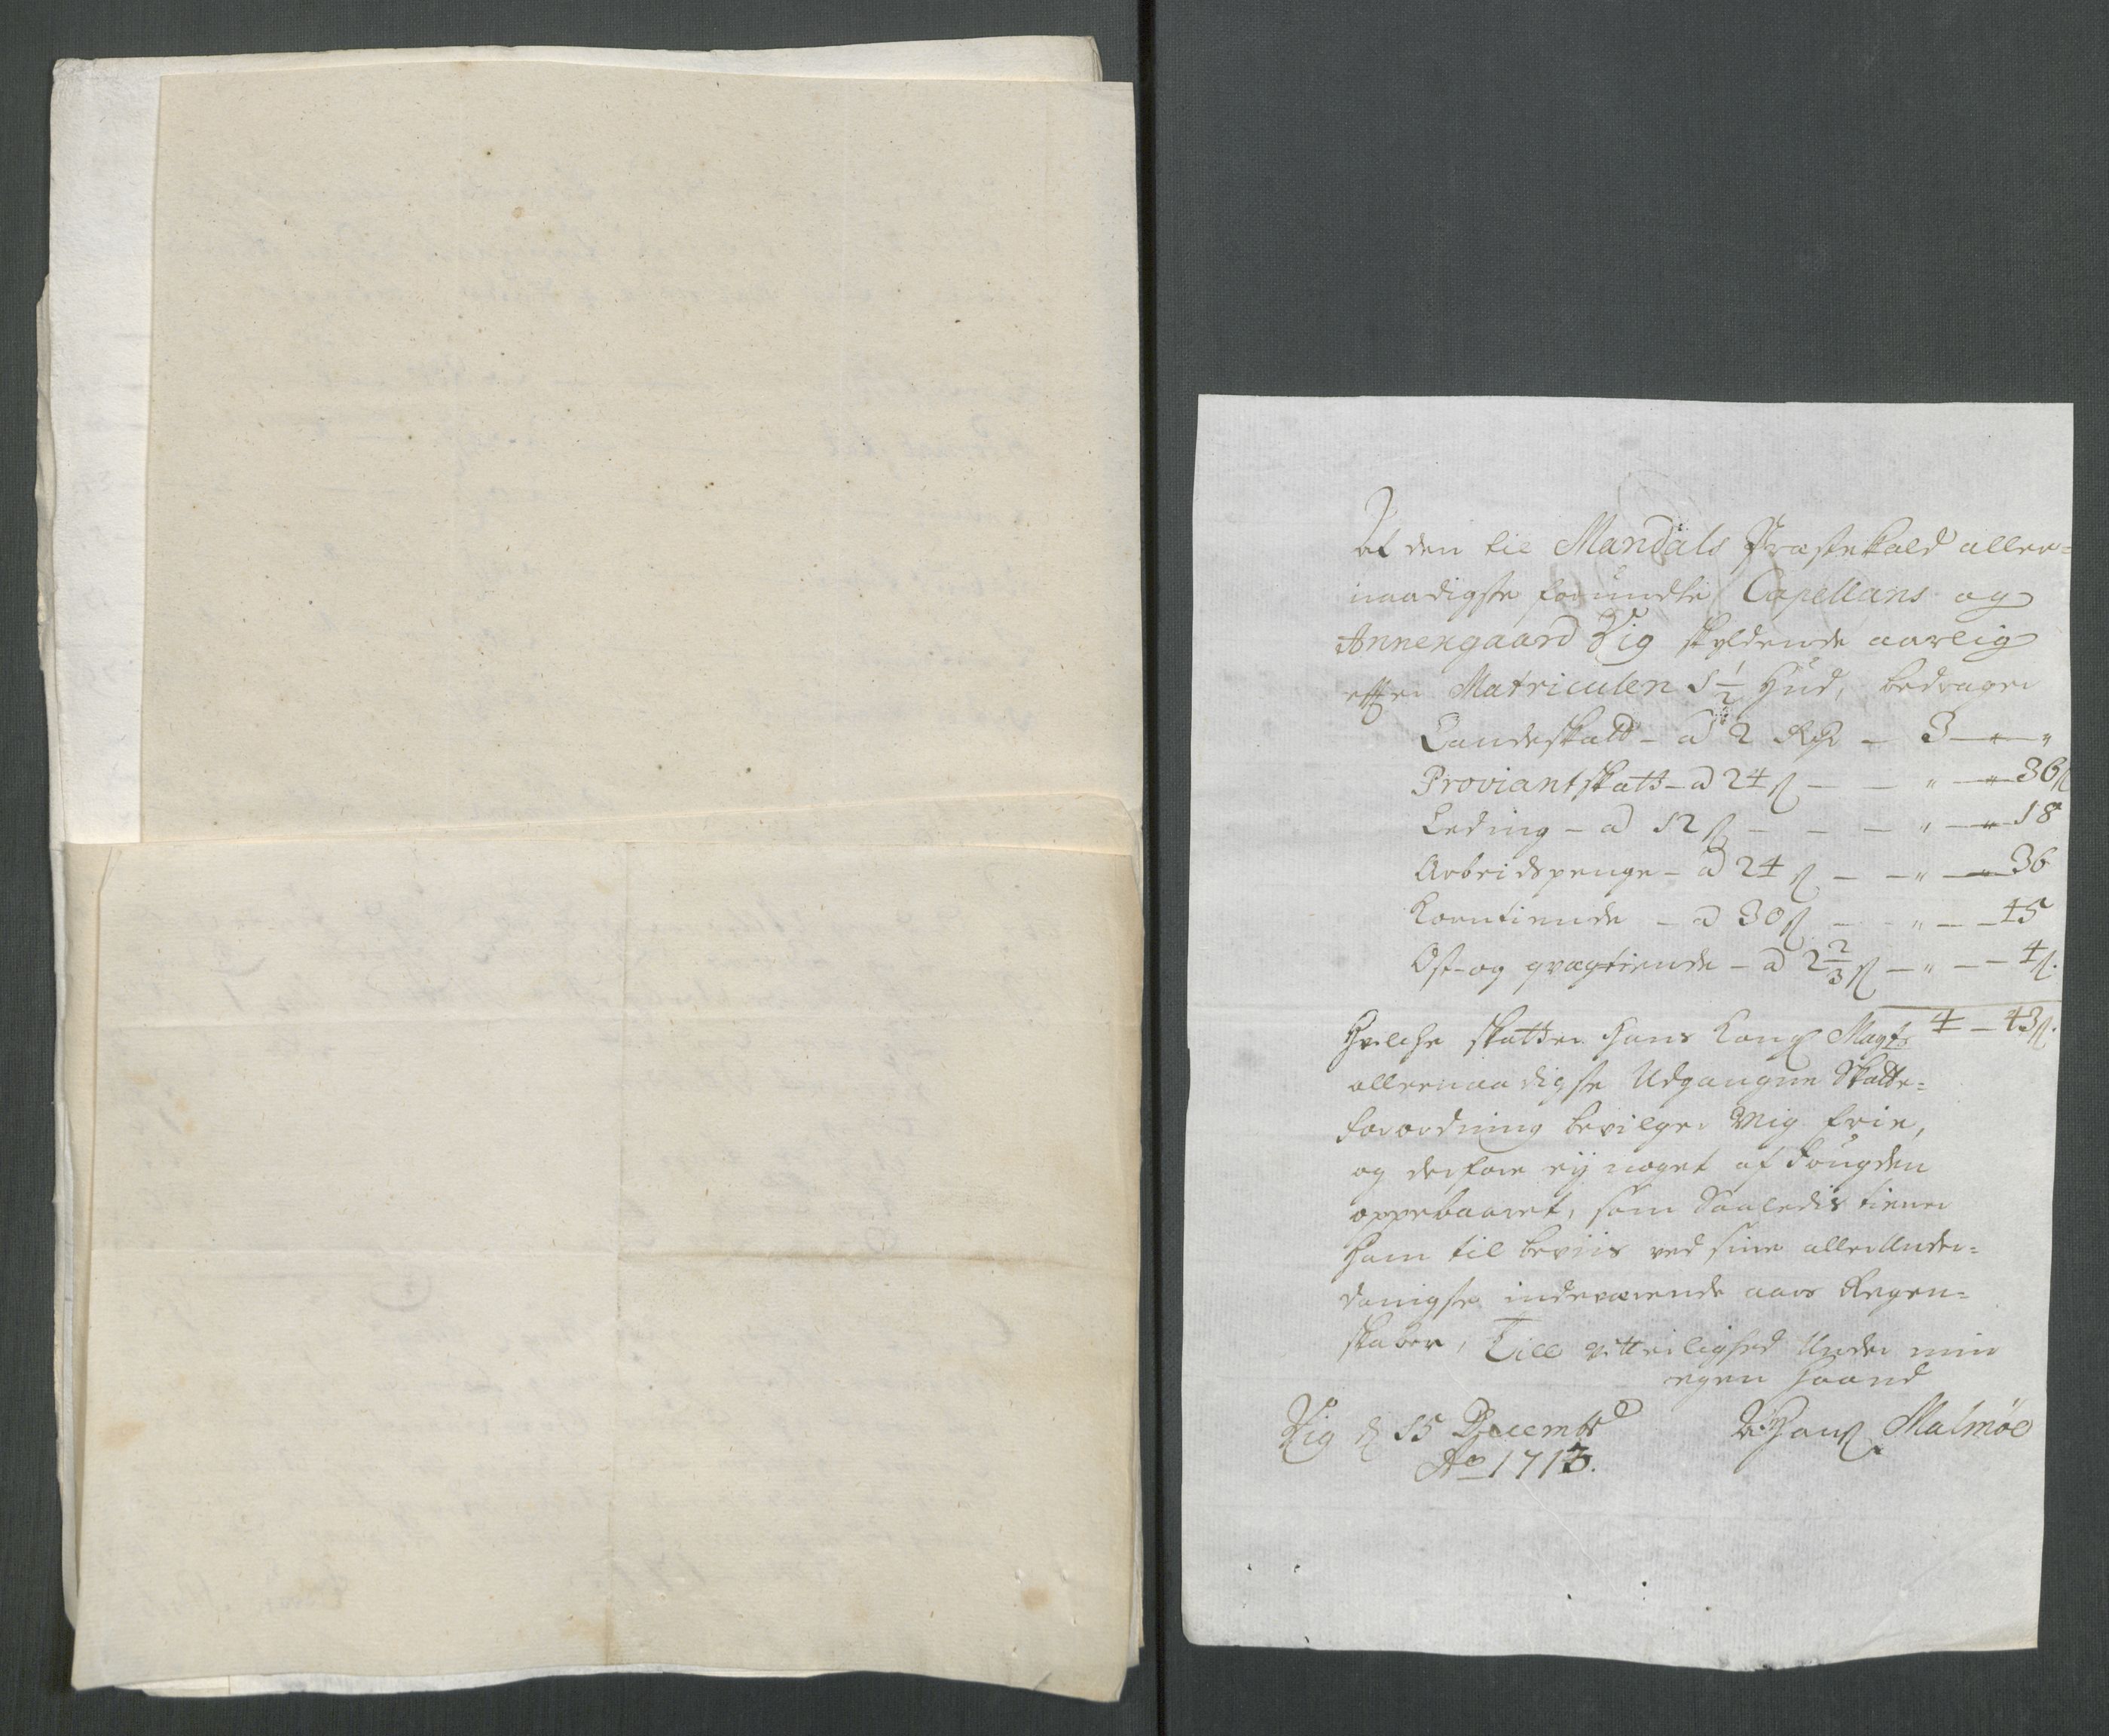 Af den til Mandals Præstekald aller=
naadigste forundte Capellans og
Annexgaard Vig skyldende aarlig
effter Matriculen 1 1/2 Hud, bedrager
Landskatt - a 2 Rdr - 3 - " - "
Proviantskatt - a 24 ß - - " - " 36 ß
Leding - a 12 ß - - - " - " 18
Arbeidspenge - a 24 ß - - " - 36
Korntiende - a 30 ß - - " - - 45
Ost- og qvægtiende - a 2 2/3 ß - " - - 4 ß.
4 - 43 ß.
Hvilche skatter Hans Kong Mayts
allernaadigste Udgangne Skatte=
forordning bevilger Mig frie,
og derfore eÿ noget af Fougden
oppebaaret, som Saaledis tiener
Ham til beviis ved sine allerUnder=
danigste indeværende aars Regen=
skaber, Till vitterlighed Under min
egen Haand
Vig d 15 Decembr
Ao 1713.
Hans Malmöe